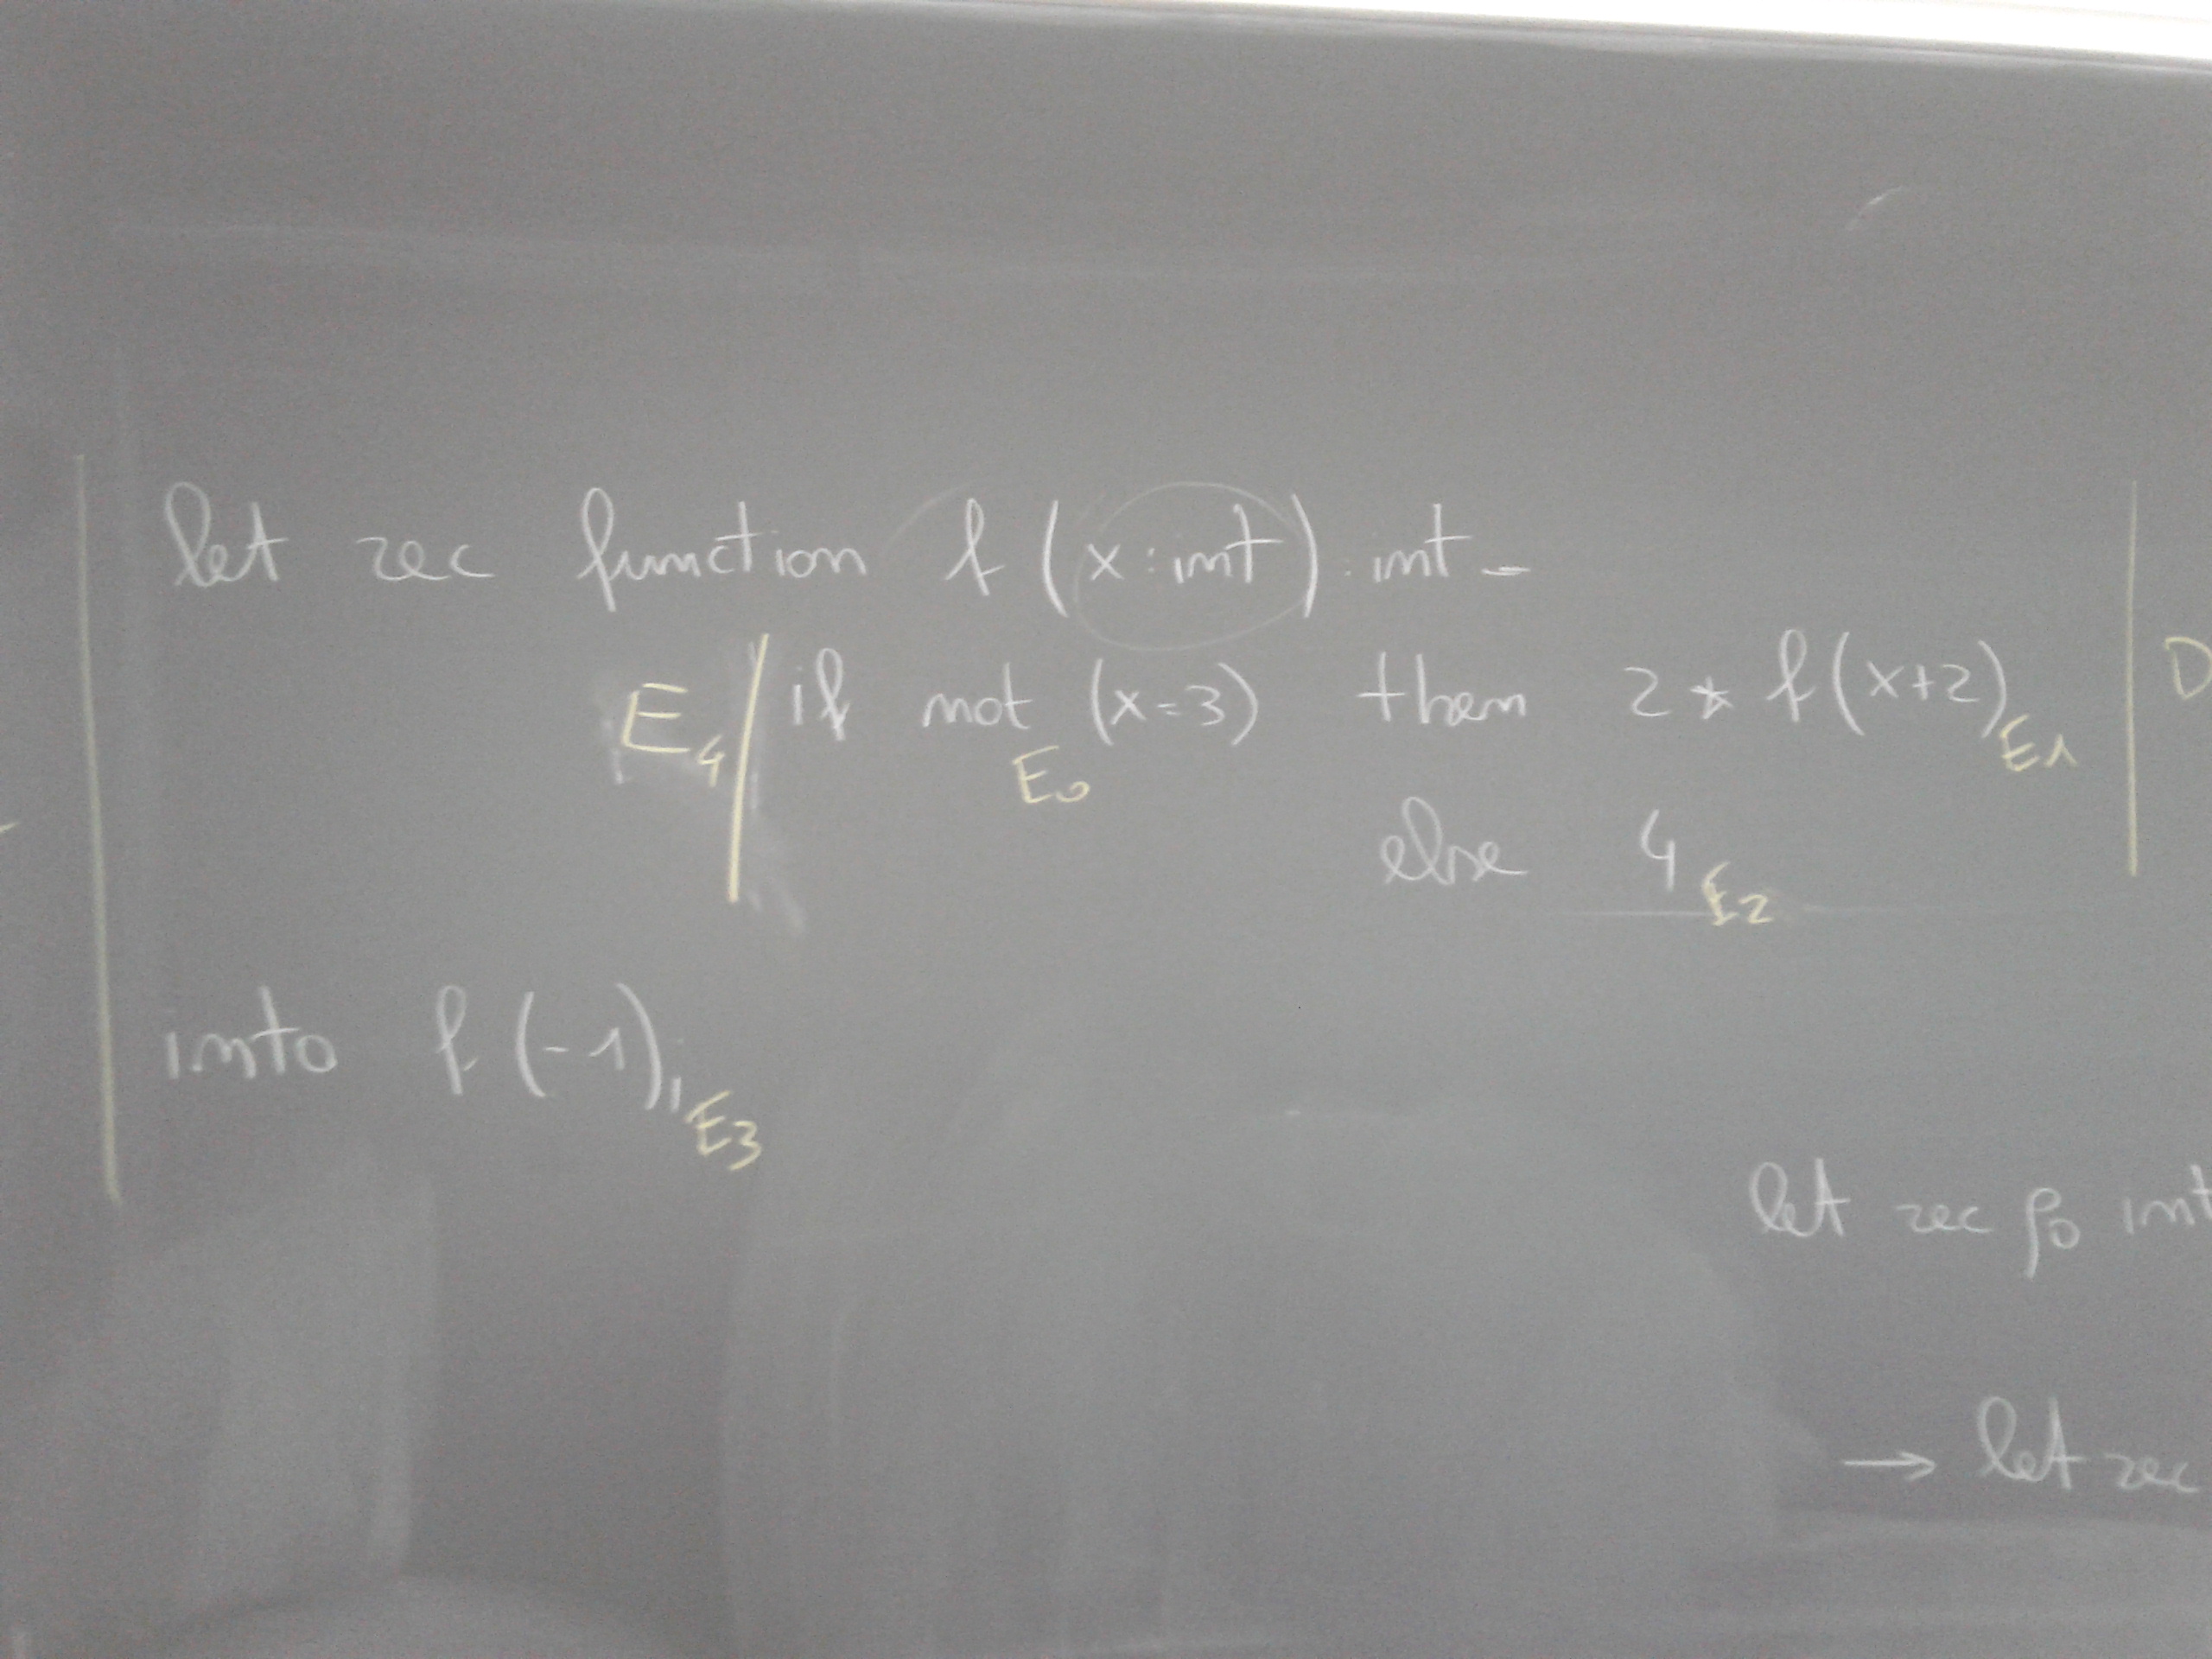 let rec function f (x:int):int =
E4 if not (x=3) E0 then 2 * f(x+2) E1 D
else 4 E2
into f(-1); E3
let rec ρ0 int
→ let rec